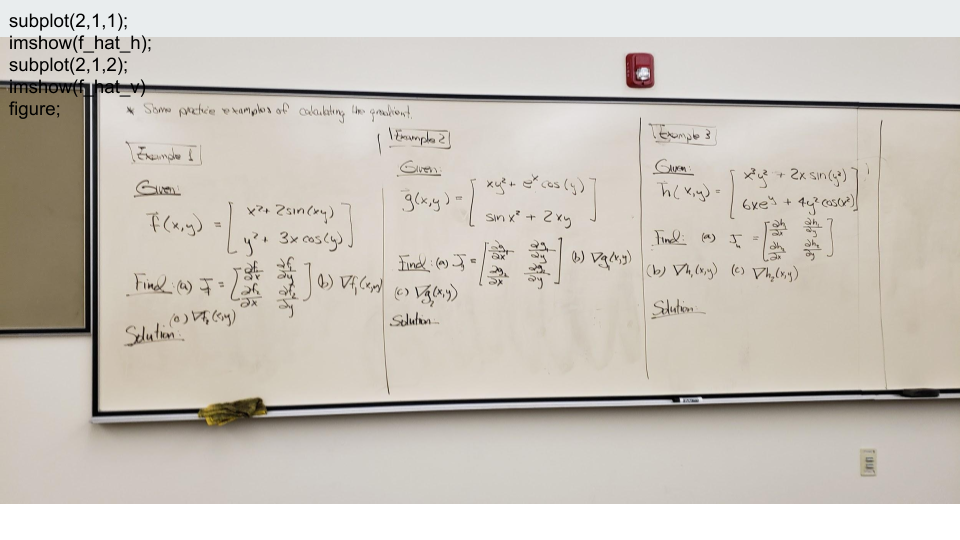 subplot(2,1,1);
imshow(f_hat_h);
subplot(2,1,2);
imshow(f_hat_v)
figure;
* Some practice examples of calculating the gradient.
Example 1
Given:
f(x,y) = [ x² + 2sin(xy)
y² + 3x cos(y) ]
Find: (a) J_f = [ ∂f₁/∂x ∂f₁/∂y
∂f₂/∂x ∂f₂/∂y ] (b) ∇f₁(x,y)
(c) ∇f₂(x,y)
Solution:
Example 2
Given:
g(x,y) = [ xy² + e^x cos(y)
sin x² + 2xy ]
Find: (a) J_g = [ ∂g₁/∂x ∂g₁/∂y
∂g₂/∂x ∂g₂/∂y ] (b) ∇g₁(x,y)
(c) ∇g₂(x,y)
Solution:
Example 3
Given:
h(x,y) = [ x²y² + 2x sin(y²)
6xe^y + 4y² cos(x²) ]
Find: (a) J_h = [ ∂h₁/∂x ∂h₁/∂y
∂h₂/∂x ∂h₂/∂y ]
(b) ∇h₁(x,y) (c) ∇h₂(x,y)
Solution: